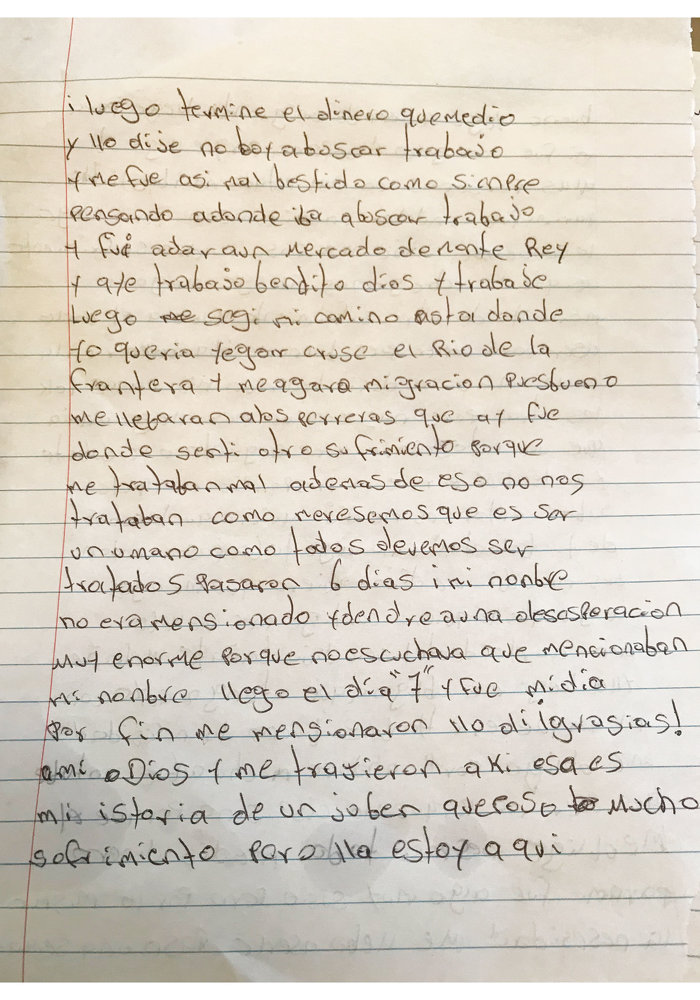 i luego termine el dinero quemedio
y llo dije no boy aboscar trabajo
y me fue asi mal bestido como sienpre
pensando adonde iba aboscar trabajo
y fué adar aun Mercado demonte Rey
y aye trabajo bendito dios y trabaje
Luego me segi mi camino asta donde
yo queria yegar cruse el Rio de la
frantera y meagara migracion puesbueno
me llebaran alas perreras que ay fue
donde senti otro sufrimiento porque
me tratabanmal ademas de eso no nos
trataban como meresemos que es ser
un umano como todos devemos ser
tratados pasaron 6 dias i mi nonbre
no era mensionado y dendre auna desesperacion
muy enorme porque noescuchava que mencionaban
mi nonbre llego el día "7" y fue midia
por fin me mensionaron llo di ¡grasias!
ami Dios y me trajieron aki esa es
mi istoria de un joben que Mucho
sofrimiento pero lla estoy aqui